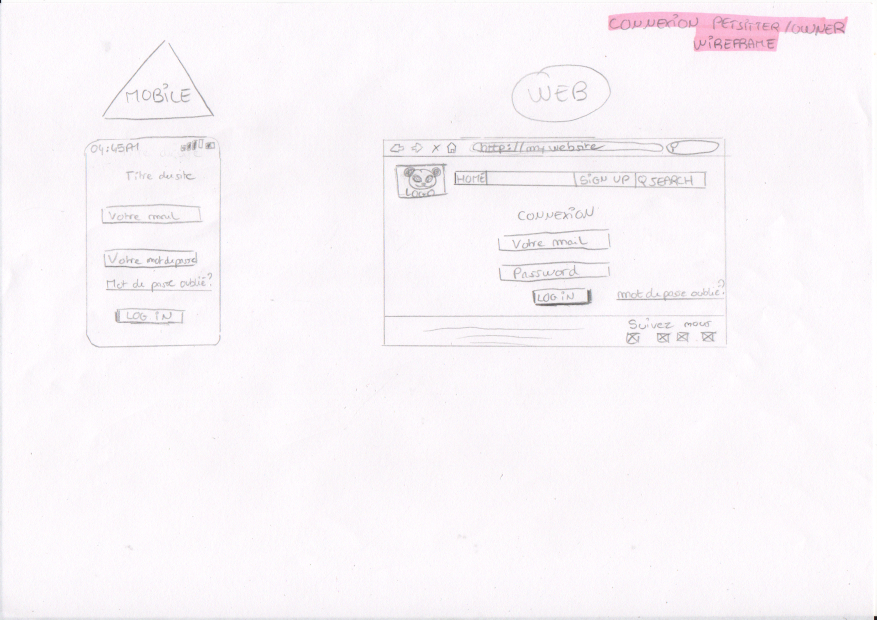 CONNEXION PETSITTER/OWNER
WIREFRAME
MOBILE
WEB
04:45AM
Titre du site
Votre mail
Votre mot de passe
Mot de passe oublié?
LOG IN
https://my website
LOGO
HOME
SIGN UP
SEARCH
CONNEXION
Votre mail
Password
LOG IN
mot de passe oublié?
Suivez nous